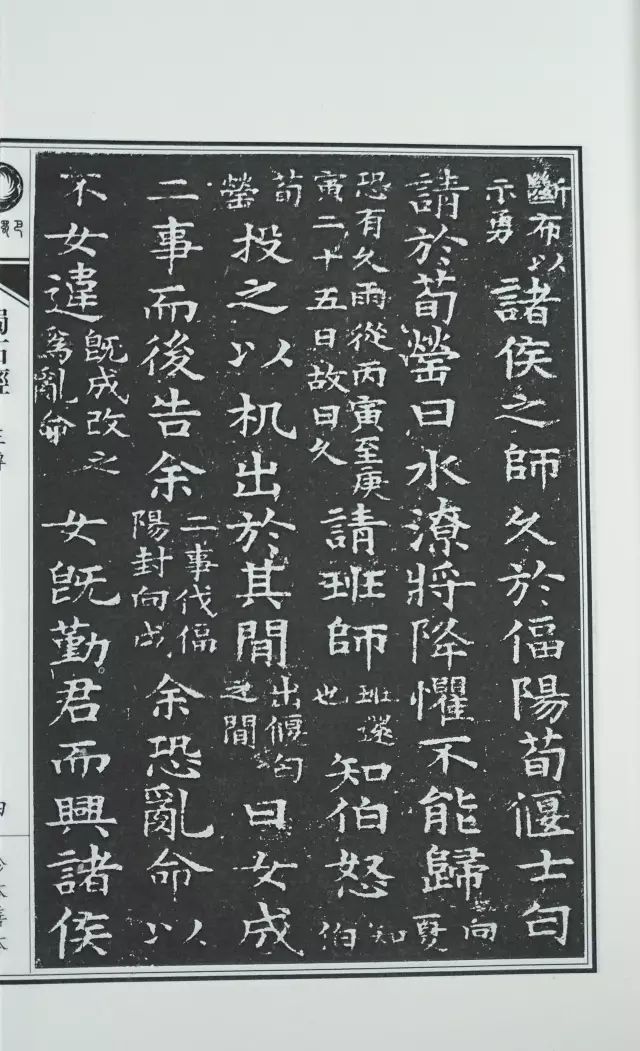 斷布以示勇諸侯之師久於偪陽荀偃士匄
請於荀罃曰水潦將降懼不能歸向夏
恐有久雨從丙寅至庚寅二十五日故曰久請班師班還也知伯怒知伯
荀罃投之以机出於其閒出偃匄之間曰女成
二事而後告余二事伐偪陽封向戌余恐亂命以
不女違既成改之爲亂命女既勤君而興諸侯
蜀石經